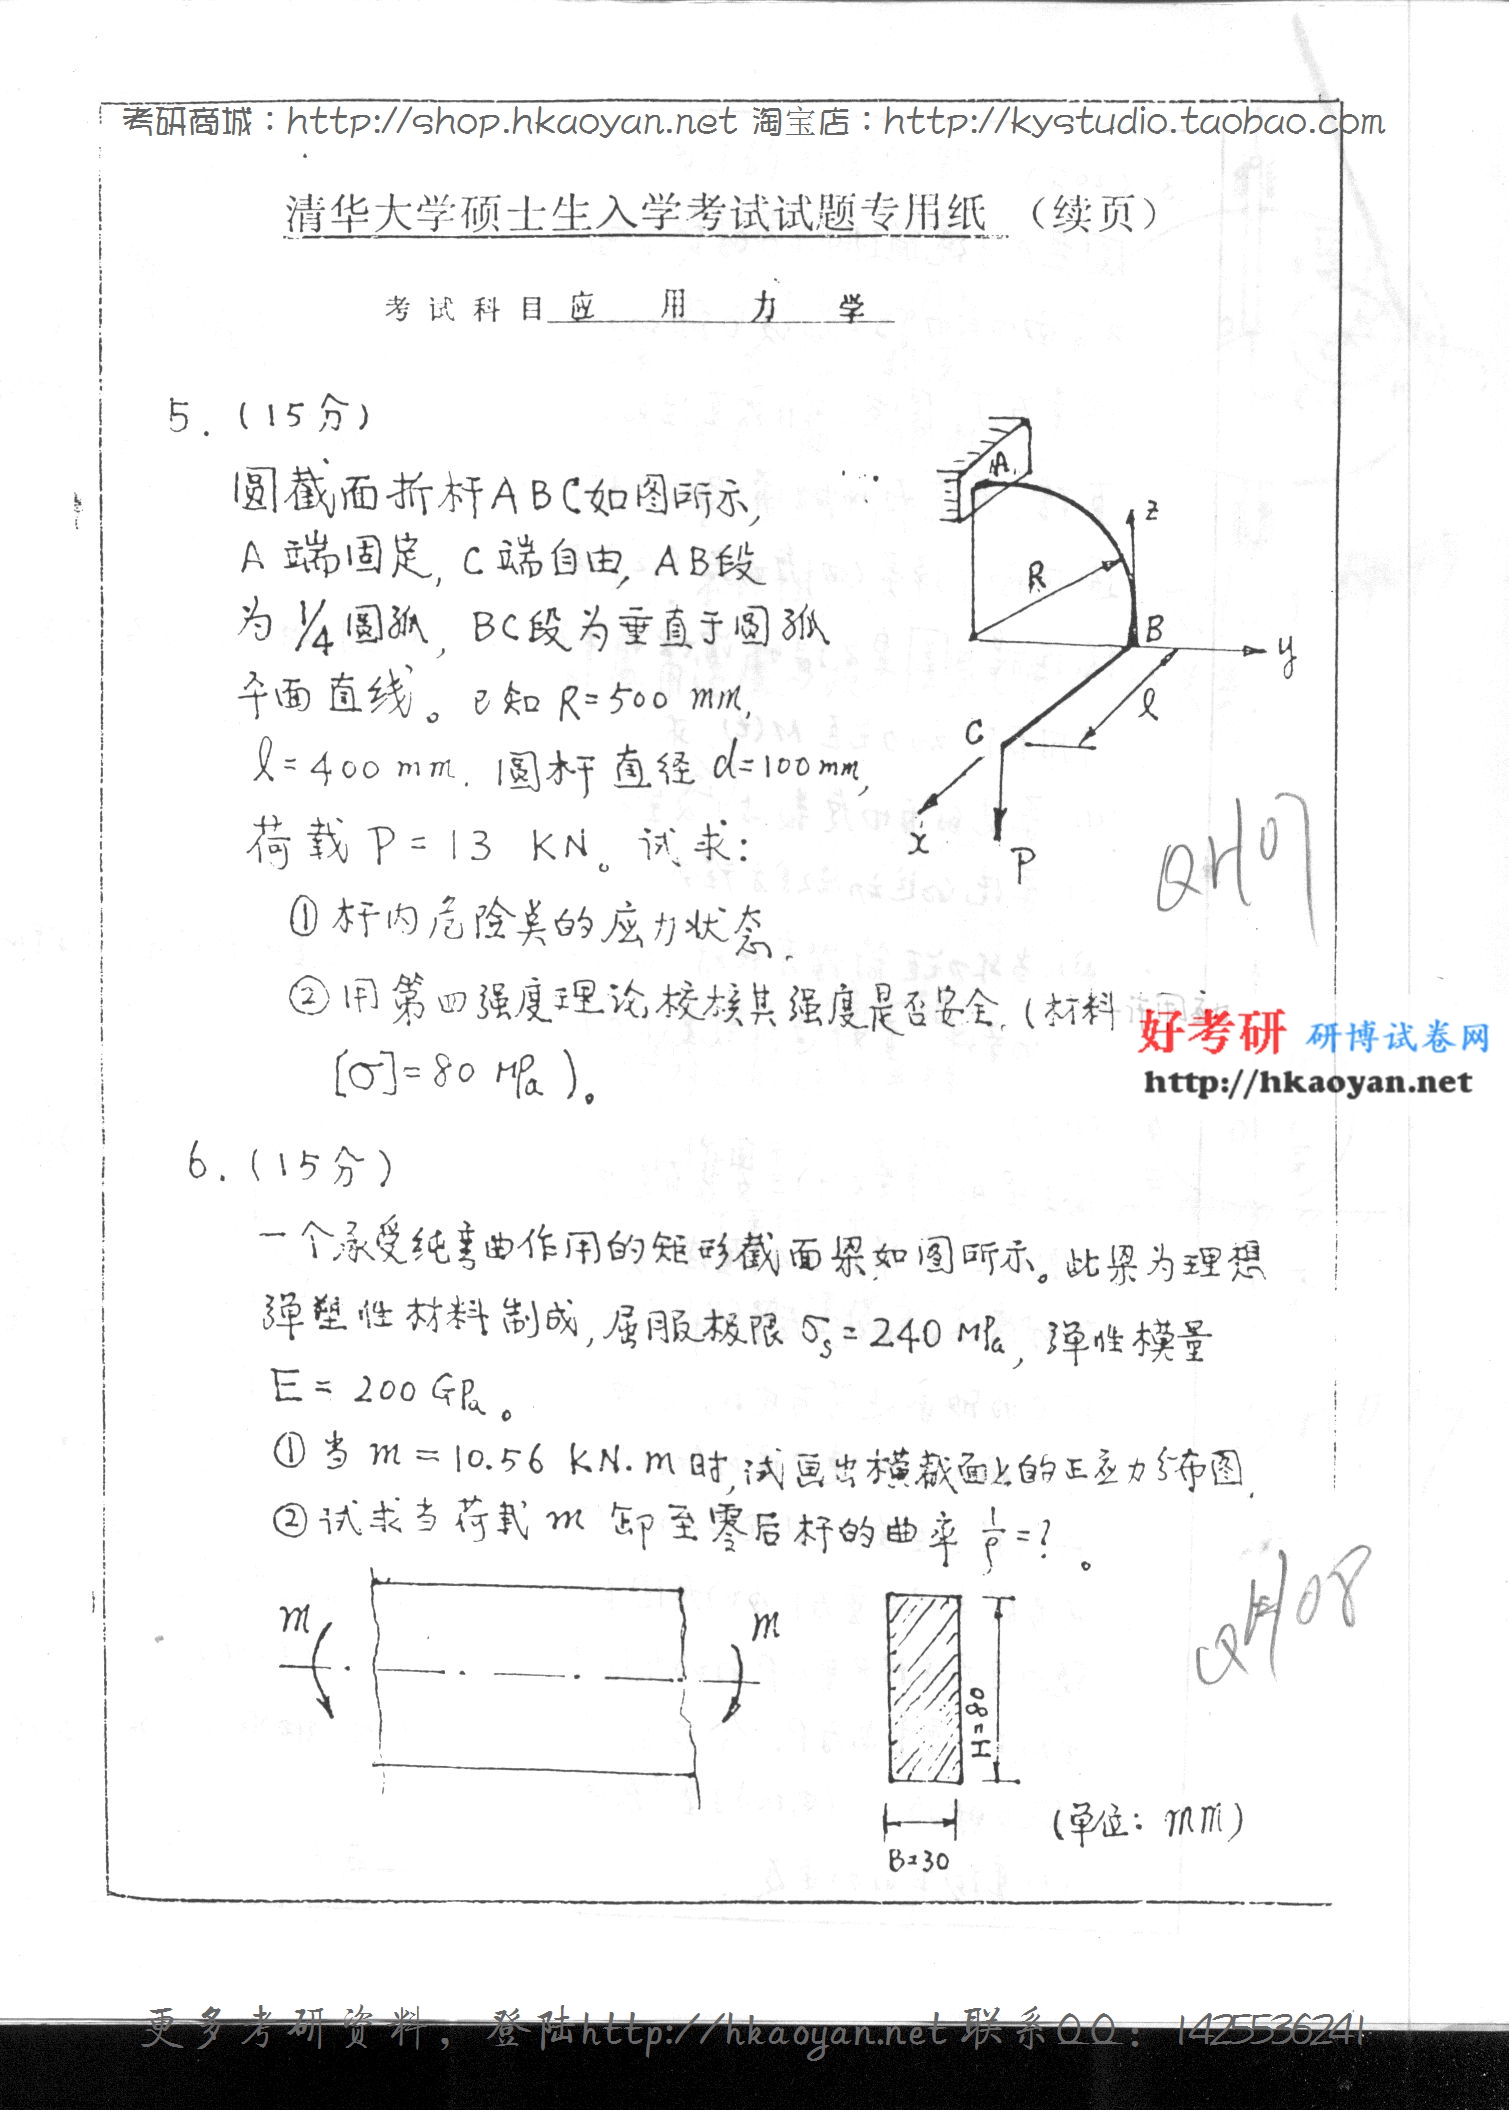 考研商城：http://shop.hkaoyan.net 淘宝店：http://kystudio.taobao.com
清华大学硕士生入学考试试题专用纸 （续页）
考试科目 应 用 力 学
5. (15分)
圆截面折杆ABC如图所示,
A端固定, C端自由, AB段
为1/4圆弧, BC段为垂直于圆弧
平面直线。已知R=500 mm,
l=400 mm. 圆杆直径d=100mm,
荷载P=13 KN。试求:
① 杆内危险点的应力状态.
② 用第四强度理论校核其强度是否安全. (材料
[σ]=80 MPa)。
A
z
R
B
y
l
C
x
P
QH07
好考研 研博试卷网
http://hkaoyan.net
6. (15分)
一个承受纯弯曲作用的矩形截面梁,如图所示。此梁为理想
弹塑性材料制成, 屈服极限 σs=240 MPa, 弹性模量
E= 200 GPa。
① 当 m=10.56 KN.m时,试画出横截面上的正应力分布图.
② 试求当荷载 m 卸至零后杆的曲率 1/ρ=?。
m
m
H=80
B=30
(单位: mm)
QH08
更多考研资料，登陆http://hkaoyan.net 联系QQ：1425536241